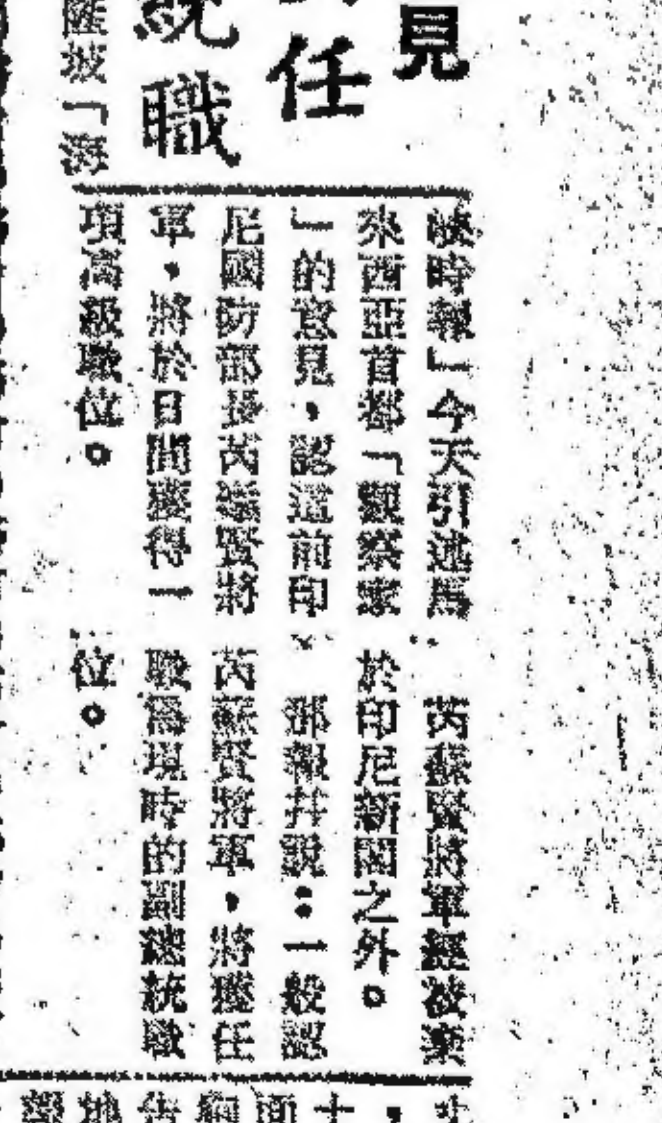 見
任
統職
匯坡「海
峽時報」今天引述馬
來西亞首都「觀察家
」的意見，認這前印
尼國防部長芮蘇賢將
軍，將於日間獲得一
項高級職位。
芮蘇賢將軍經被棄
於印尼新閣之外。
邵報幷說：一般認
芮蘇賢將軍，將獲任
職爲現時的副總統職
位。